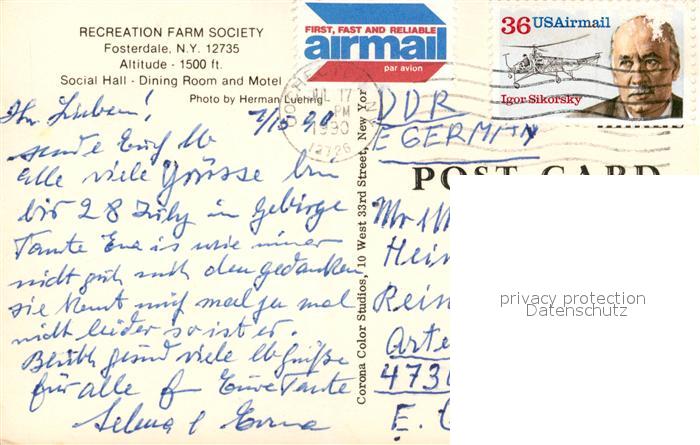 RECREATION FARM SOCIETY
Fosterdale, N.Y. 12735
Altitude - 1500 ft.
Social Hall - Dining Room and Motel
Photo by Herman Luehrig
FIRST, FAST AND RELIABLE
airmail
par avion
36 USAirmail
Igor Sikorsky
JUL 17
PM
1990
12726
Ihr Lieben! 7/15 90
sende Euch
alle viele Grüsse bin
bis 28 July in Gebirge
Tante Erna is wie immer
nicht gut mit den gedanken
sie kennt mich
nicht leider so ist er.
Bleibt gesund viele Grüße
für alle Eure Tante
Selma Erna
Corona Color Studios, 10 West 33rd Street, New York
DDR
E GERMANY
POST CARD
Mr
Hein
Rein
Arte
4730
E.
privacy protection
Datenschutz